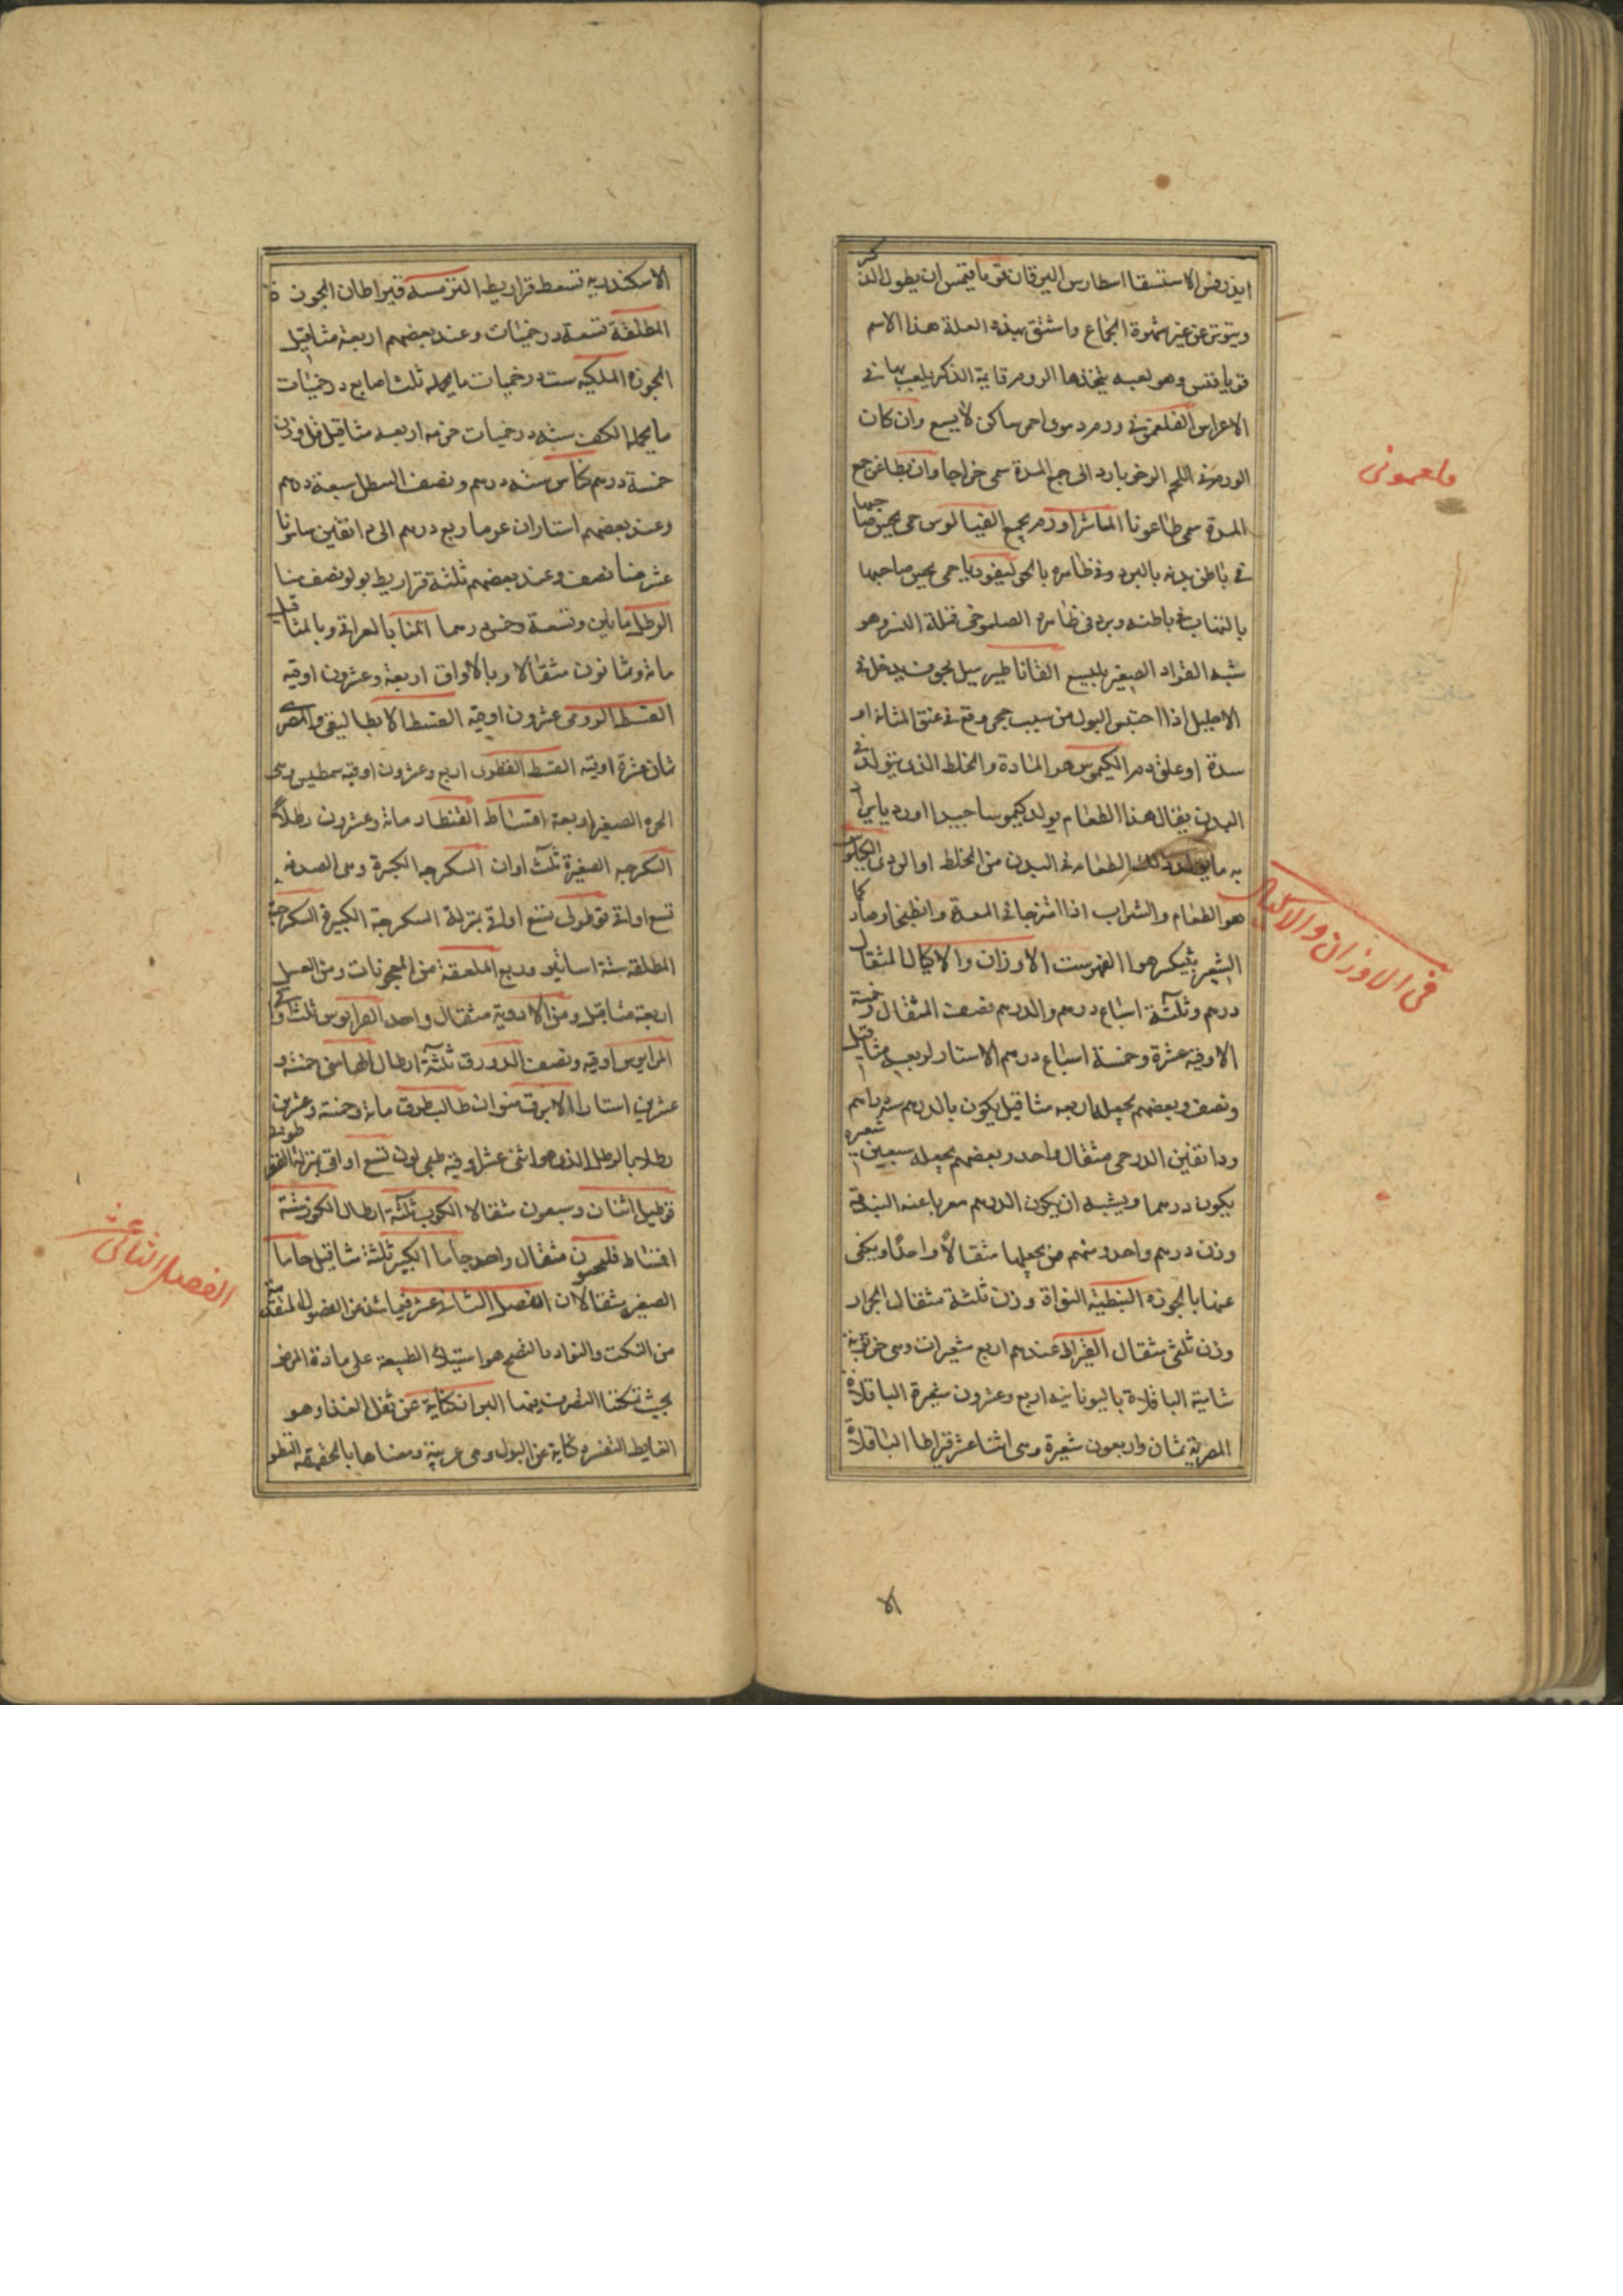 الاستسقا اسطارس اليرقان قوما يقمس ان يطول الذكر
ويتوتر عن غير شهوة الجماع واشتق بهذه العلة هذا الاسم
وهو لعبه يتخذها الروم قايمة الذكر يلعب بها فى
الاعراس الفلغمونى ورم دموى احمر ساكن لا يسع وان كان
الورم فى اللحم الرخو بارد الى جمع المدة سمى خراجا وان بطا عن جمع
المدة سمى طاعونا الماشرا ورم يجمع الفيالوس حمى يحس صاحبها
فى باطن بدنه بالبرد وفى ظاهره بالحر ليفوريا حمى يحس صاحبها
بالتهاب فى باطنه وبرد فى ظاهره الصلموخى قملة النسر وهو
شبه القراد الصغير يلسع القاناطير ميل مجوف يدخل فى
الاحليل اذا احتبس البول من سبب حجر وقع فى عنق المثانة او
سدة او علق دم الكيموس هو المادة والخلط الذى يتولد فى
البدن يقال هذا الطعام يولد كيموسا جيدا او رديا يراد
به ما يتولد من ذلك الطعام فى البدن من الخلط او الردى الكيلوس
هو الطعام والشراب اذا امتزجا فى المعدة وانطبخا وصار كماء
الشعير الفهرست الاوزان والاكيال المثقال
درهم وثلثة اسباع درهم والدرهم نصف المثقال وخمسه
الاوقيه عشرة وخمسة اسباع درهم الاستار اربعه مثاقيل
ونصف وبعضهم يجعله اربعه مثاقيل يكون بالدرهم سته دراهم
ودانقين الدرخمى مثقال واحد وبعضهم يجعله سبعين شعيره
يكون درهما ويشبه ان يكون الدرهم معربا عنه البندقة
وزن درهم واحد ومنهم من يجعلها مثقالا واحدا ويكنى
عنها بالجوزه النبطيه النواة وزن ثلثة مثقال
وزن ثلثى مثقال القيراط عندهم اربع شعيرات وهى خرنوبة
شامية الباقلاة باليونانيه اربع وعشرون شعيرة الباقلاة
المصرية ثمان واربعون شعيرة وهى اثنا عشر قيراطا الباقلاة
الا
فلغمونى
فى الاوزان والاكيال
الاسكندريه تسعه قراريط الترمسه قيراطان الجوزه
المطلقة تسعة درخميات وعند بعضهم اربعة مثاقيل
الجوزه الملكيه ست درخميات ما يحمله ثلث اصابع درخميات
ما يحمله الكف سته درخميات حزمه اربعه مثاقيل
خمسة درهم كاس سته درهم ونصف السطل سبعة درهم
وعند بعضهم استاران عرما ربع درهم الى دانقين
عشر منا نصف وعند بعضهم ثلثة قراريط بولو نصف منا
الرطل مايتين وتسعة وخمس درهما المنا بالعراقى وبالمثاقيل
ماة وثمانون مثقالا وبالاواق اربعة وعشرون اوقيه
القسط الرومى عشرون اوقيه القسط الانطاليقى والمصرى
ثمان عشرة اوقيه القسط اربع وعشرون اوقيه
الجره الصغير اربعة اقساط القنطار ماة وعشرون رطلا
السكرجه الصغيرة ثلث اواق السكرجه الكبيرة وهى الصدفه
تسع اواق قوطولى تسع اواق بمنزلة السكرجة الكبيرة السكرجة
المطلقه ستة اساتير وربع الملعقة من المعجونات ومن العسل
اربعة مثاقيل ومن الادوية مثقال واحد
اوقيه ونصف الدورق ثلثة ارطال خمسة و
عشرين استارا الابريق منوان ماة وخمسة وعشرين
رطلا بالرطل الذى هو اثنى عشر اوقيه تسع اواق بمنزلة القوطولى
اثنان وسبعون مثقالا الكوب ثلثة ارطال الكوز ستة
اقساط مثقال واحد جاما الكبير ثلثة مثاقيل جاما
الصغير مثقالان الفصل الثانى عشر فيما شذ عن الفصول المتقدمه
من النكت والنوادر النضج هو استيلاء الطبيعة على مادة المرض
بحيث تمكنها التصرف فيها البراز كناية عن ثفل الغذا وهو
الغايط التفسره كناية عن البول وهى عربية ومعناها بالحقيقة النظر
الفصل الثانى عشر